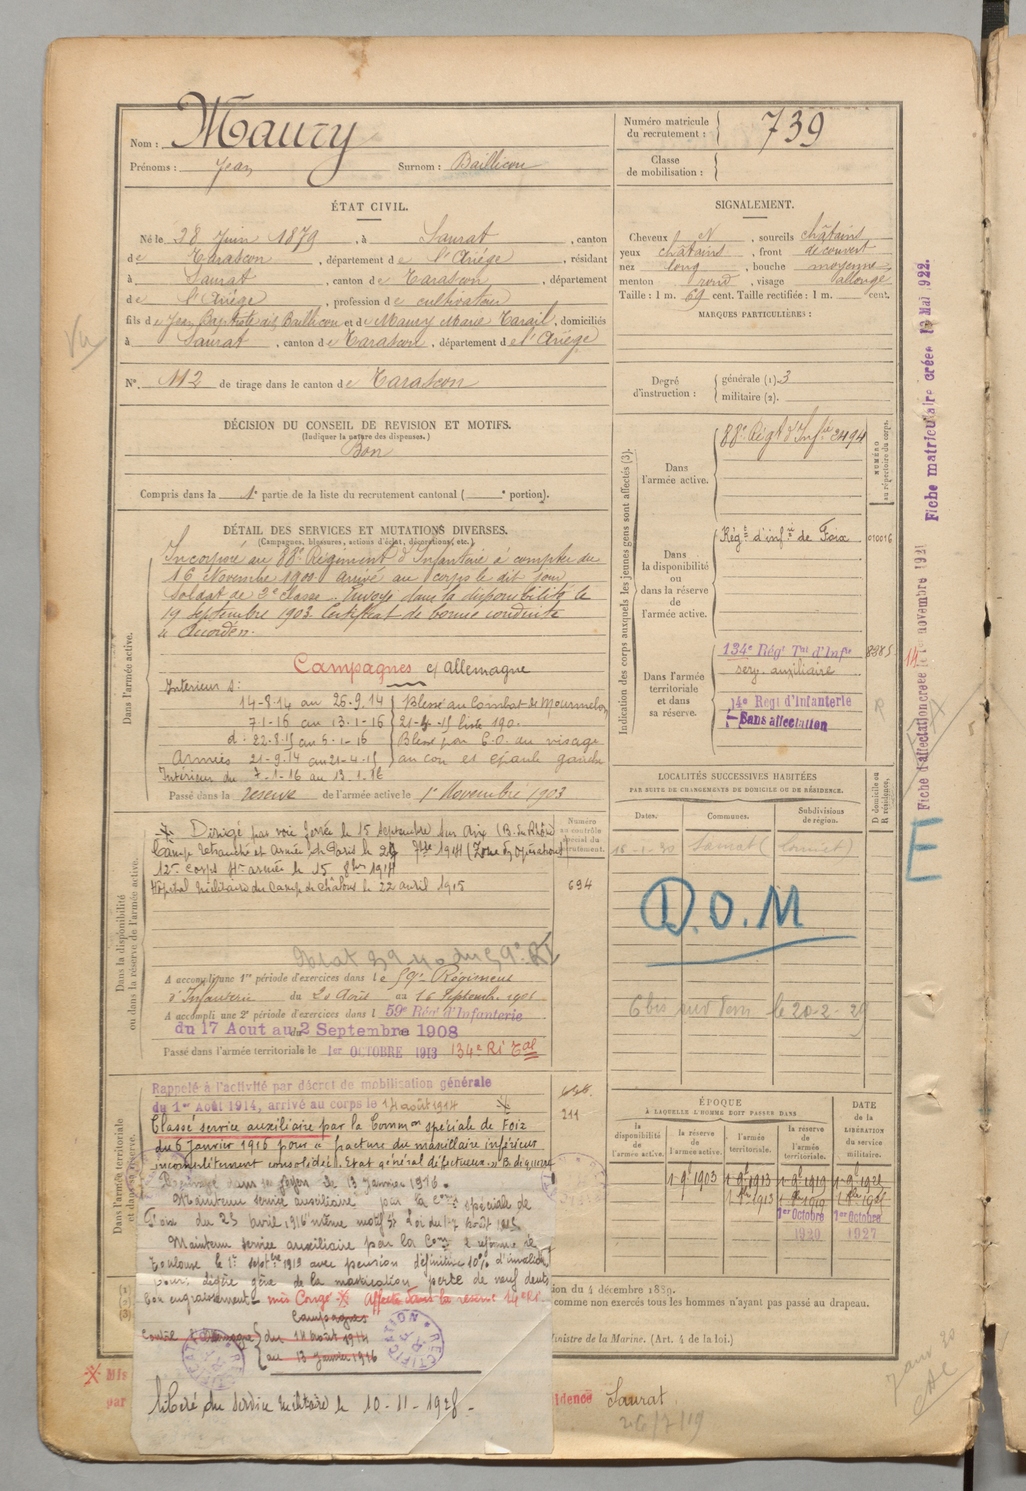 Nom : Maury
Prénoms : Jean Surnom : Baillicou
Numéro matricule du recrutement : 739
Classe de mobilisation :
ÉTAT CIVIL.
Né le 28 Juin 1879, à Saurat, canton
de Tarascon, département de l'Ariège, résidant
à Saurat, canton de Tarascon, département
de l'Ariège, profession de cultivateur
fils de Jean Baptiste dit Baillicou et de Maury Marie, domiciliés
à Saurat, canton de Tarascon, département de l'Ariège
N°. 112 de tirage dans le canton de Tarascon
SIGNALEMENT.
Cheveux N, sourcils châtains
yeux châtains, front découvert
nez long, bouche moyenne
menton rond, visage allongé
Taille : 1 m. 69 cent. Taille rectifiée : 1 m. cent.
MARQUES PARTICULIÈRES :
Degré d'instruction : générale (1). 3
militaire (2).
DÉCISION DU CONSEIL DE REVISION ET MOTIFS.
(Indiquer la nature des dispenses.)
Bon
Compris dans la 1e partie de la liste du recrutement cantonal ( portion).
DÉTAIL DES SERVICES ET MUTATIONS DIVERSES.
(Campagnes, blessures, actions d'éclat, décorations, etc.)
Dans l'armée active.
Incorporé au 88e Régiment d'Infanterie à compter du
16 Novembre 1900. arrivé au corps le dit jour
soldat de 2e classe. Envoyé dans la disponibilité le
19 Septembre 1903. Certificat de bonne conduite
accordé.
Campagnes c/ Allemagne
Intérieur
14-8-14 au 26-9-14 Blessé au Combat de Mourmelon
7-1-16 au 13-1-16 liste 190.
d : 22.8.15 au 6-1-16 Blessé par E.O. au visage
Armées 21-9.14 au 21-4-15 au cou et épaule gauche
Intérieur du 7-1-16 au 13.1.16
Passé dans la réserve de l'armée active le 1er Novembre 1903
Indication des corps auxquels les jeunes gens sont affectés (3).
NUMÉRO au répertoire du corps.
Dans l'armée active.
88e Régt d'Infie 2494
Dans la disponibilité ou dans la réserve de l'armée active.
Régt d'infie de Foix 010016
Dans l'armée territoriale et dans sa réserve.
134e Régt Tal d'Infie 8985
serv. auxiliaire
14e Régt d'Infanterie
Sans affectation
Dans la disponibilité ou dans la réserve de l'armée active.
Numéro au contrôle spécial du recrutement.
Dirigé par voie ferrée le 15 septembre sur Aix (B. du Rhône)
Camp retranché et Armée de Paris le 29 7bre 1914 (Zone des Opérations)
12e corps 4e armée le 15 8bre 1914
Hôpital Militaire du Camp de Châlons le 22 avril 1915
694
A accompli une 1re période d'exercices dans le 59e Régiment
d'Infanterie du 20 Août au 16 Septembre 1906
A accompli une 2e période d'exercices dans le 59e Régt d'Infanterie
du 17 Aout au 2 Septembre 1908
Passé dans l'armée territoriale le 1er OCTOBRE 1913 134e RI Tal
LOCALITÉS SUCCESSIVES HABITÉES
PAR SUITE DE CHANGEMENTS DE DOMICILE OU DE RÉSIDENCE.
Dates. Communes. Subdivisions de région. D domicile ou R résidence.
Saurat
D.O.M
le 20-2-29
Dans l'armée territoriale et dans sa réserve.
Rappelé à l'activité par décret de mobilisation générale
du 1er Août 1914, arrivé au corps le 14 août 1914
211
Classé service auxiliaire par la Common spéciale de Foix
du 6 Janvier 1916 pour « fracture du maxillaire inférieur
incomplètement consolidée. Etat général défectueux. » B. de guerre
dans ses foyers le 13 Janvier 1916.
Maintenu service auxiliaire par la Con spéciale de
Foix du 25 avril 1916 même motif loi du 17 août 1915
Maintenu service auxiliaire par la Com de réforme de
Toulouse le 1er septbre 1919 avec pension définitive 10% d'invalidité
pour : légère gêne de la mastication perte de neuf dents
bon engraissement. mis Congé Affecté dans la réserve 14e RI.
Campagnes
Contre Allemagne du 14 août 1914
au 13 Janvier 1916
RECTIFICATION
libéré du service militaire le 10-11-1928.
ÉPOQUE
À LAQUELLE L'HOMME DOIT PASSER DANS
la disponibilité de l'armée active. la réserve de l'armée active. l'armée territoriale. la réserve de l'armée territoriale.
DATE de la LIBÉRATION du service militaire.
1er Octobre 1920
1er Octobre 1927
du 4 décembre 1889.
comme non exercés tous les hommes n'ayant pas passé au drapeau.
Ministre de la Marine. (Art. 4 de la loi.)
Mis
par
idence Saurat
26/7/19
Fiche matriculaire créée 13 Mai 1922.
Fiche d'affectation créée 14 novembre 1921
E